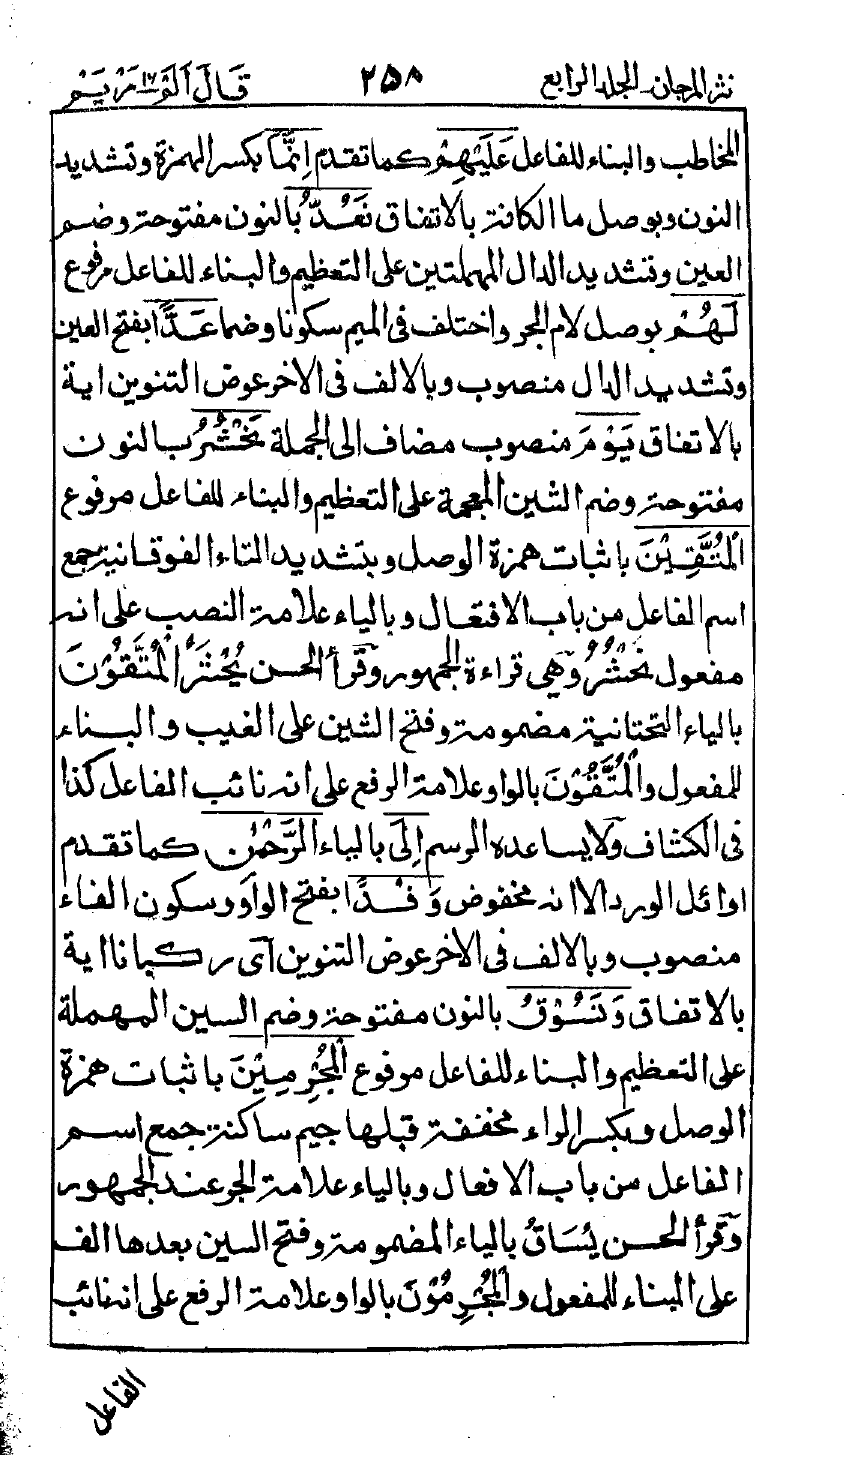 نثر المرجان ـ المجلد الرابع ٢٥٨ قَالَ اَلَمْ ١٦ مَرْيَمْ
المخاطب والبناء للفاعل عَلَيْهِمْ كما تقدم اِنَّمَا بكسر الهمزة وتشديد
النون وبوصل ما الكافة بالاتفاق نَعُدُّ بالنون مفتوحة وضم
العين وتشديد الدال المهملتين على التعظيم والبناء للفاعل مرفوع
لَهُمْ بوصل لام الجر واختلف فى الميم سكونا وضما عَدًّا بفتح العين
وتشديد الدال منصوب وبالالف فى الاخر عوض التنوين اية
بالاتفاق يَوْمَ منصوب مضاف الى الجملة نَحْشُرُ بالنون
مفتوحة وضم الشين المعجمة على التعظيم والبناء للفاعل مرفوع
الْمُتَّقِيْنَ باثبات همزة الوصل وبتشديد التاء الفوقانية جمع
اسم الفاعل من باب الافتعال وبالياء علامة النصب على انه
مفعول نَحْشُرُ وَهِى قراءة الجمهور وَقرأ الحسن يُحْشَرُ الْمُتَّقُوْنَ
بالياء التحتانية مضمومة وفتح الشين على الغيب والبناء
للمفعول والْمُتَّقُوْنَ بالواو علامة الرفع على انه نائب الفاعل كذا
فى الكشاف وَلا يساعده الرسم اِلَى بالياء الرَّحْمٰنِ كما تقدم
اوائل الورد الا انه مخفوض وَفْدًا بفتح الواو وسكون الفاء
منصوب وبالالف فى الاخر عوض التنوين اَى ركبانا اية
بالاتفاق وَنَسُوْقُ بالنون مفتوحة وضم السين المهملة
على التعظيم والبناء للفاعل مرفوع الْمُجْرِمِيْنَ باثبات همزة
الوصل وبكسر الراء مخففة قبلها جيم ساكنة جمع اسم
الفاعل من باب الافعال وبالياء علامة الجر عند الجمهور
وَقرأ الحسن يُسَاقُ بالياء المضمومة وفتح السين بعدها الف
على البناء للمفعول والْمُجْرِمُوْنَ بالواو علامة الرفع على انه نائب
الفاعل